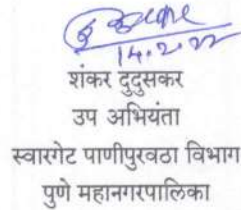 14.2.22
शंकर दुदुसकर
उप अभियंता
स्वारगेट पाणीपुरवठा विभाग
पुणे महानगरपालिका